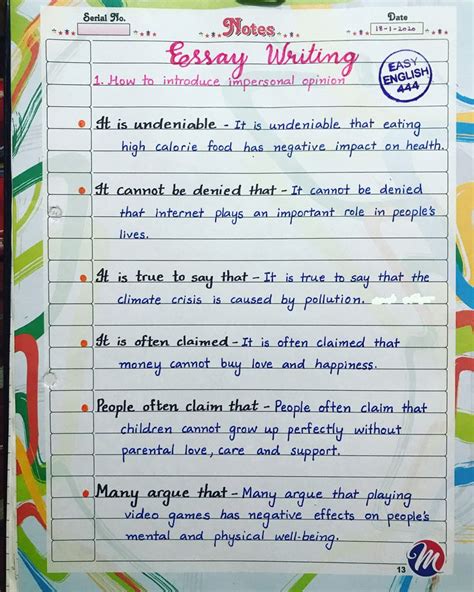 Serial No.
Notes
Date
18-1-2020
Essay Writing
1. How to introduce impersonal opinion
EASY
ENGLISH
444
It is undeniable - It is undeniable that eating
high calorie food has negative impact on health.
It cannot be denied that - It cannot be denied
that Internet plays an important role in people's
lives.
It is true to say that - It is true to say that the
climate crisis is caused by pollution.
It is often claimed - It is often claimed that
money cannot buy love and happiness.
People often claim that - People often claim that
children cannot grow up perfectly without
parental love, care and support.
Many argue that - Many argue that playing
video games has negative effects on people's
mental and physical well-being.
13
M